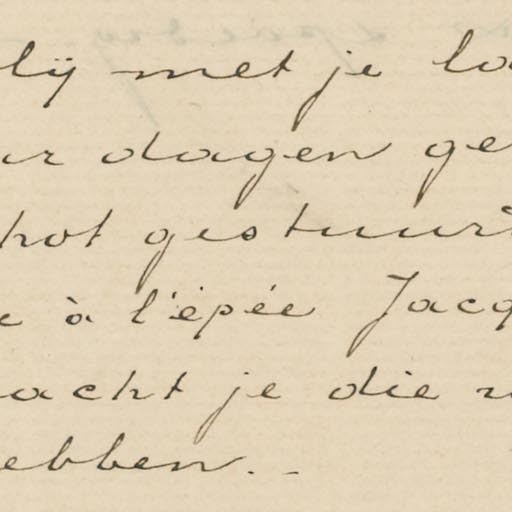 lij met je lo
ur dagen ge
hot gestuurd
e à l'épée Jacq
acht je die
ebben.-